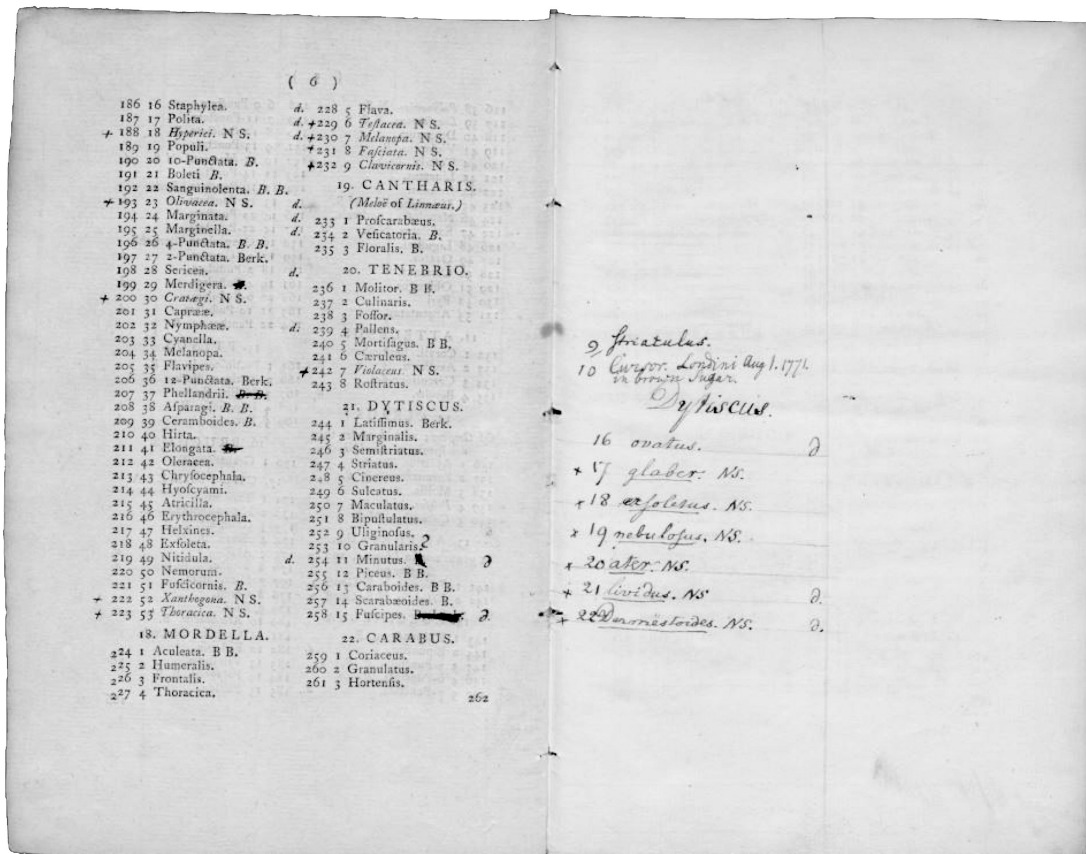 ( 6 )
186 16 Staphylea.
187 17 Polita.
+ 188 18 Hyperici. N S.
189 19 Populi.
190 20 10-Punctata. B.
191 21 Boleti B.
192 22 Sanguinolenta. B. B.
+ 193 23 Olivacea. N S.
194 24 Marginata.
195 25 Marginella.
196 26 4-Punctata. B. B.
197 27 2-Punctata. Berk.
198 28 Sericea.
199 29 Merdigera.
+ 200 30 Cratægi. N S.
201 31 Capreæ.
202 32 Nymphææ.
203 33 Cyanella.
204 34 Melanopa.
205 35 Flavipes.
206 36 12-Punctata. Berk.
207 37 Phellandrii. B. B.
208 38 Aſparagi. B. B.
209 39 Ceramboides. B.
210 40 Hirta.
211 41 Elongata.
212 42 Oleracea.
213 43 Chryſocephala.
214 44 Hyoſcyami.
215 45 Atricilla.
216 46 Erythrocephala.
217 47 Helxines.
218 48 Exſoleta.
219 49 Nitidula.
220 50 Nemorum.
221 51 Fuſcicornis. B.
+ 222 52 Xanthogona. N S.
+ 223 53 Thoracica. N S.
18. MORDELLA.
224 1 Aculeata. B B.
225 2 Humeralis.
226 3 Frontalis.
227 4 Thoracica.
d. 228 5 Flava.
d. +229 6 Teſtacea. N S.
d. +230 7 Melanopa. N S.
+231 8 Faſciata. N S.
+232 9 Clavicornis. N S.
19. CANTHARIS.
d. (Meloë of Linnæus.)
d. 233 1 Proſcarabæus.
d. 234 2 Veſicatoria. B.
235 3 Floralis. B.
20. TENEBRIO.
d.
236 1 Molitor. B B.
237 2 Culinaris.
238 3 Foſſor.
d. 239 4 Pallens.
240 5 Mortiſagus. B B.
241 6 Cæruleus.
+242 7 Violaceus. N S.
243 8 Roſtratus.
21. DYTISCUS.
244 1 Latiſſimus. Berk.
245 2 Marginalis.
246 3 Semiſtriatus.
247 4 Striatus.
248 5 Cinereus.
249 6 Sulcatus.
250 7 Maculatus.
251 8 Bipuſtulatus.
252 9 Uliginoſus.
253 10 Granularis.
d. 254 11 Minutus. ∂
255 12 Piceus. B B.
256 13 Caraboides. B B.
257 14 Scarabæoides. B.
258 15 Fuſcipes. ∂.
22. CARABUS.
259 1 Coriaceus.
260 2 Granulatus.
261 3 Hortenſis.
262
9 ſtriatulus.
10 Curſor. Londini Aug 1. 1771.
in brown Sugar.
Dytiscus.
16 ovatus. ∂
+ 17 glaber. NS.
+ 18 NS.
x 19 nebuloſus. NS.
x 20 ater. NS.
+ 21 lividus. NS ∂.
+ 22 Dermestoides. NS. ∂.